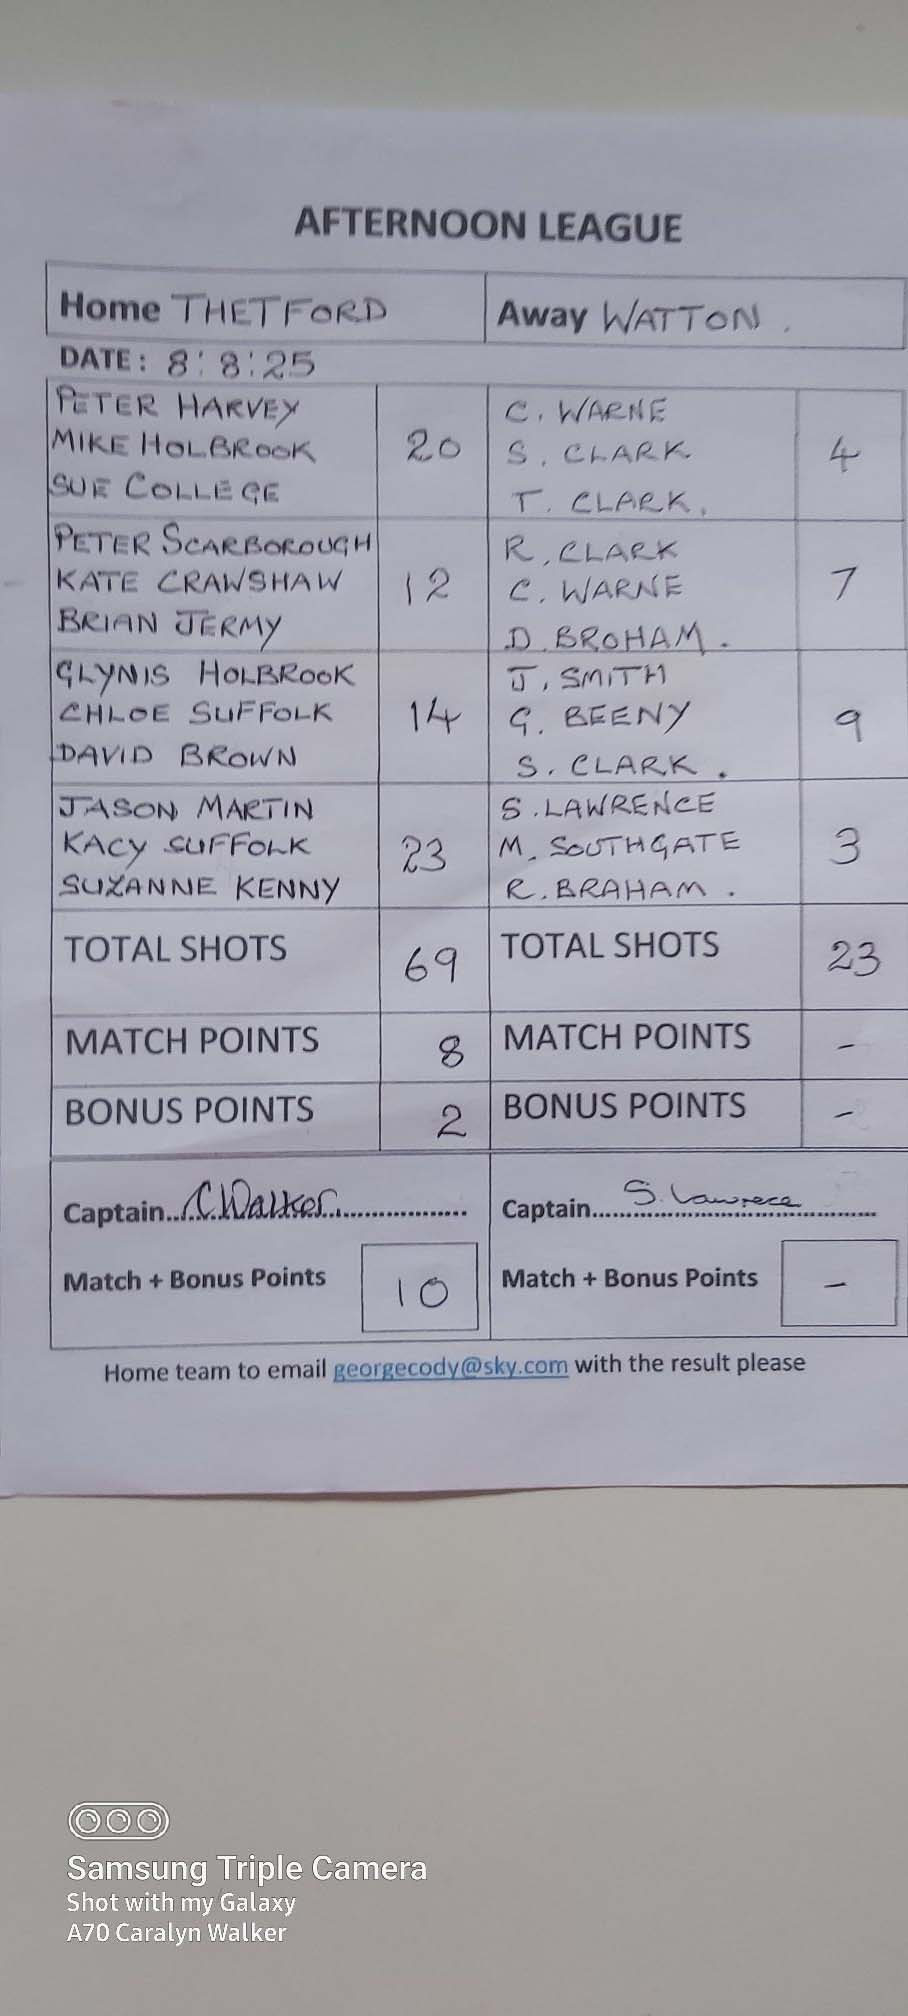 AFTERNOON LEAGUE
Home THETFORD
Away WATTON.
DATE: 8:8:25
PETER HARVEY
MIKE HOLBROOK
SUE COLLEGE
20
C. WARNE
S. CLARK
T. CLARK.
4
PETER SCARBOROUGH
KATE CRAWSHAW
BRIAN JERMY
12
R. CLARK
C. WARNE
D. BROHAM.
7
GLYNIS HOLBROOK
CHLOE SUFFOLK
DAVID BROWN
14
J. SMITH
G. BEENY
S. CLARK.
9
JASON MARTIN
KACY SUFFOLK
SUZANNE KENNY
23
S. LAWRENCE
M. SOUTHGATE
R. BRAHAM.
3
TOTAL SHOTS
69
TOTAL SHOTS
23
MATCH POINTS
8
MATCH POINTS
-
BONUS POINTS
2
BONUS POINTS
-
Captain...C Walker...................
Captain...S. Lawrece...................
Match + Bonus Points
10
Match + Bonus Points
-
Home team to email georgecody@sky.com with the result please
Samsung Triple Camera
Shot with my Galaxy
A70 Caralyn Walker